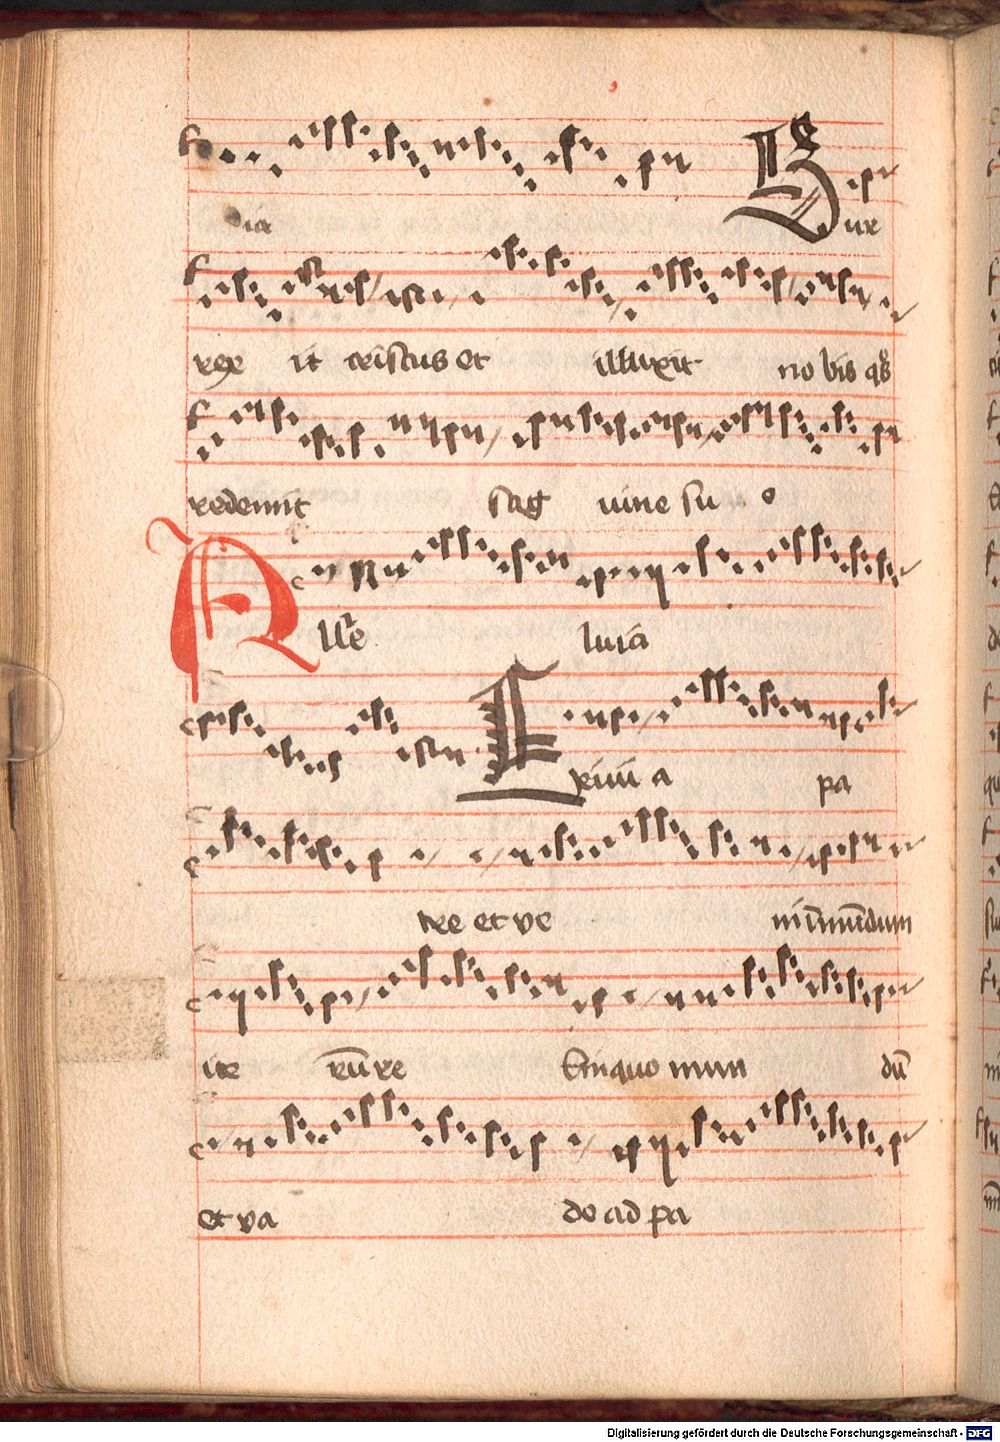 ia Sur
rex it cristus et illuxit no bis qs
redemit sag uine su o
Alle luia
Exiui a pa
tre et ve ni i mūdum
ite rū re linquo mun dū
et va do ad pa
Digitalisierung gefördert durch die Deutsche Forschungsgemeinschaft - DFG